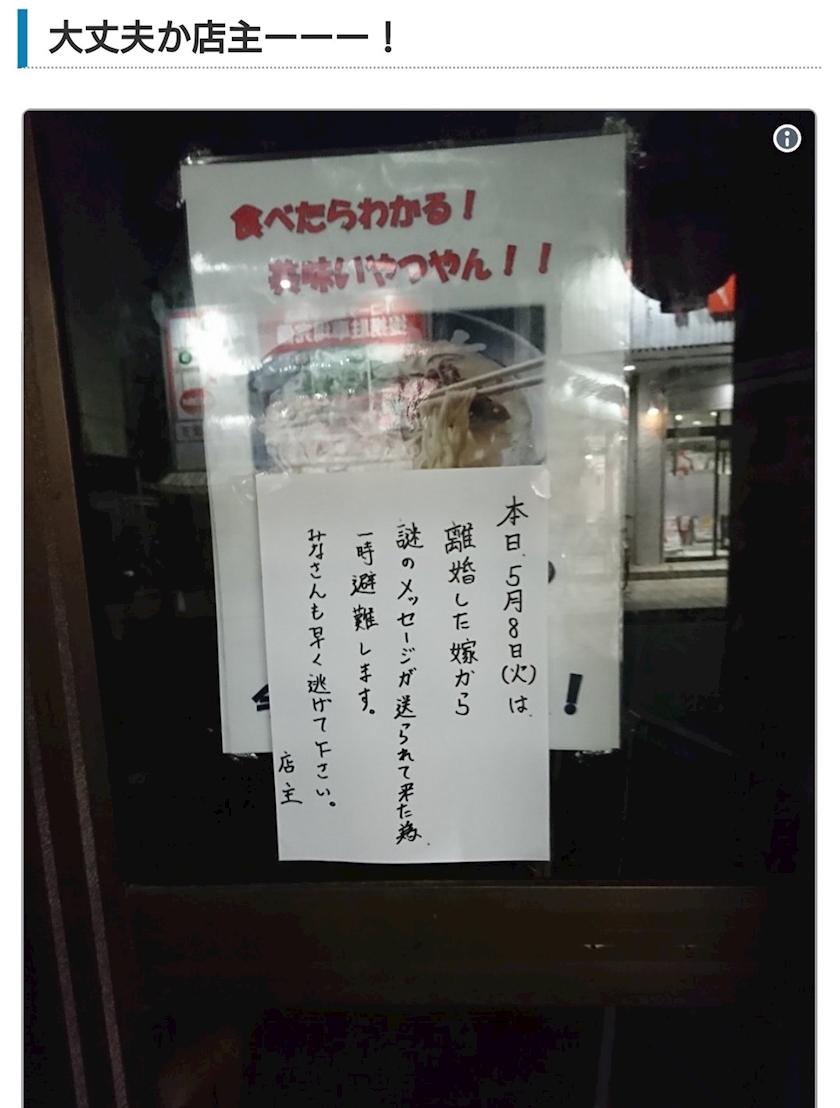 大丈夫か店主ーーー！
食べたらわかる！
美味いやつやん！！
本日、5月8日(火)は、
離婚した嫁から
謎のメッセージが送られて来た為、
一時避難します。
みなさんも早く逃げて下さい。
店主
！